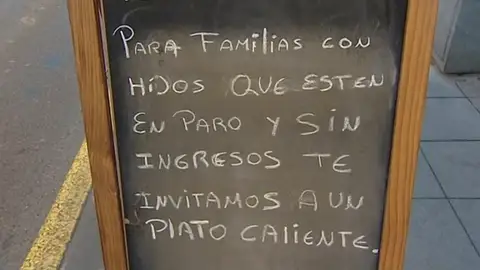 PARA FAMILIAS CON
HIJOS QUE ESTEN
EN PARO Y SIN
INGRESOS TE
INVITAMOS A UN
PLATO CALIENTE.